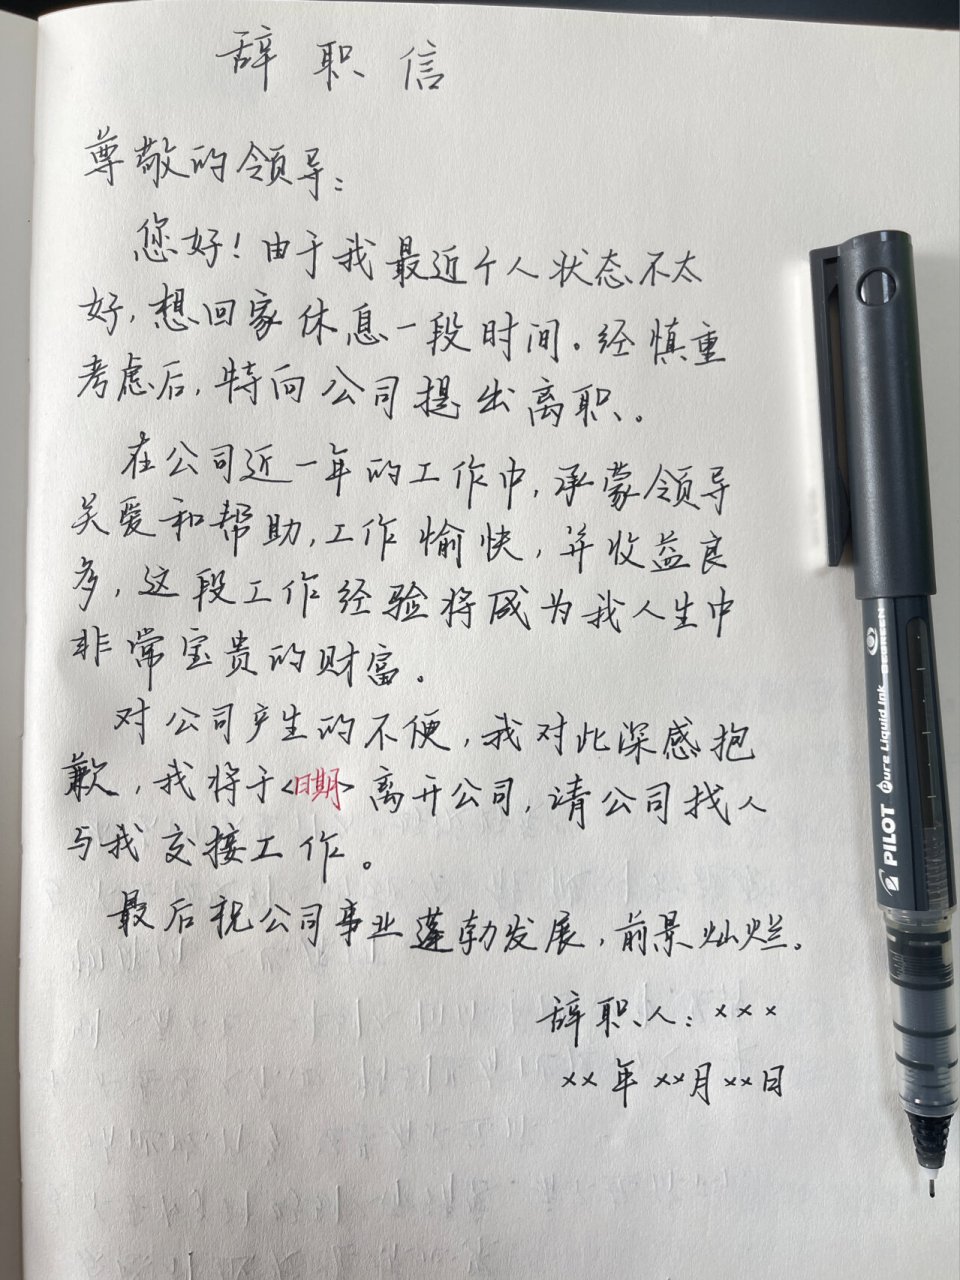 辞职信
尊敬的领导：
您好！由于我最近个人状态不太
好，想回家休息一段时间。经慎重
考虑后，特向公司提出离职。
在公司近一年的工作中，承蒙领导
关爱和帮助，工作愉快，并收益良
多，这段工作经验将成为我人生中
非常宝贵的财富。
对公司产生的不便，我对此深感抱
歉，我将于<日期>离开公司，请公司找人
与我交接工作。
最后祝公司事业蓬勃发展，前景灿烂。
辞职人：×××
××年××月××日
PILOT Pure Liquid Ink BEGREEN